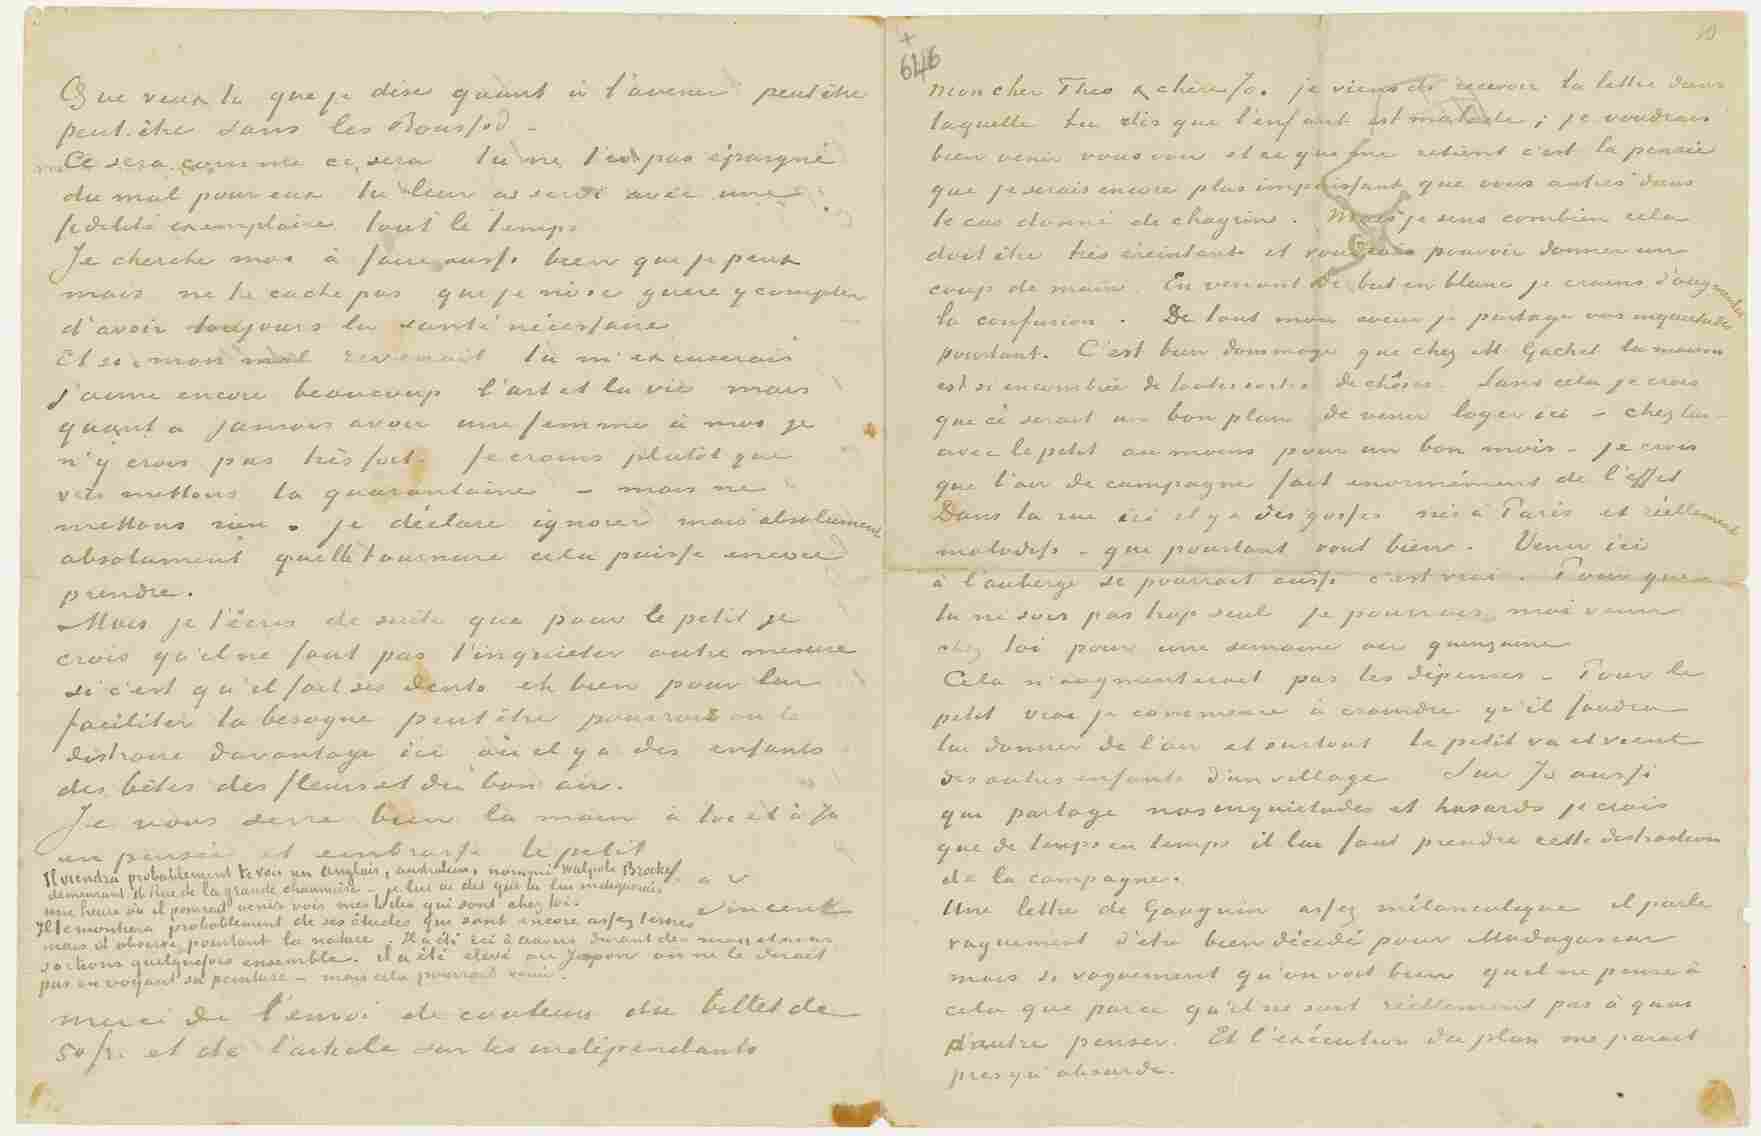 Que veux tu que je dise quant à l'avenir peutêtre
peut-être sans les Boussod –
Ce sera comme ce sera tu ne t'es pas épargné
du mal pour eux tu leur as servi avec une
fidelité exemplaire tout le temps
Je cherche moi à faire aussi bien que je peux
mais ne te cache pas que je n'ose guere y compter
d'avoir toujours la santé nécessaire
Et si mon mal revenait tu m'excuserais
j'aime encore beaucoup l'art et la vie mais
quant à jamais avoir une femme à moi je
n'y crois pas très fort. Je crains plutôt que
vers mettons la quarantaine – mais ne
mettons rien. je déclare ignorer mais absolument
absolument quelle tournure cela puisse encore
prendre.
Mais je t'écris de suite que pour le petit je
crois qu'il ne faut pas t'inquieter outre mesure
si c'est qu'il fait ses dents eh bien pour lui
faciliter la besogne peut être pourrait on le
distraire davantage ici où il y a des enfants
des bêtes des fleurs et du bon air.
Je vous serre bien la main à toi et à Jo
en pensée et embrasse le petit
t. à v.
Vincent
Il viendra probablement te voir un anglais, australien, nommé Walpole Brooke,
demeurant 16 Rue de la grande chaumière – je lui ai dit que tu lui indiquerais
une heure où il pourrait venir voir mes toiles qui sont chez toi.
Il te montrera probablement de ses études qui sont encore assez ternes
mais il observe pourtant la nature. Il a été ici à Auvers durant des mois et nous
sortions quelquefois ensemble. il a été élevé au Japon on ne le dirait
pas en voyant sa peinture – mais cela pourrait venir.
merci de l'envoi de couleurs du billet de
50 fr. et de l'article sur les indépendants
646
Mon cher Theo & chère Jo. je viens de recevoir ta lettre dans
laquelle tu dis que l'enfant est malade; je voudrais
bien venir vous voir et ce qui me retient c'est la pensée
que je serais encore plus impuissant que vous autres dans
le cas donné de chagrins. Mais je sens combien cela
doit être très ereintant et voudrais pouvoir donner un
coup de main. En venant de but en blanc je crains d'augmenter
la confusion. De tout mon coeur je partage vos inquietudes
pourtant. C'est bien dommage que chez M. Gachet la maison
est si encombrée de toutes sortes de choses. Sans cela je crois
que ce serait un bon plan de venir loger ici – chez lui –
avec le petit au moins pour un bon mois. – je crois
que l'air de campagne fait enormément de l'effet
Dans la rue ici il y a des gosses nés à Paris et réellement
maladifs – qui pourtant vont bien. Venir ici
à l'auberge se pourrait aussi c'est vrai. Pour que
tu ne sois pas trop seul je pourrais moi venir
chez toi pour une semaine ou quinzaine
Cela n'augmenterait pas les dépenses – Pour le
petit vrai je commence à craindre qu'il faudra
lui donner de l'air et surtout le petit va et vient
des autres enfants d'un village Sur Jo aussi
qui partage nos inquietudes et hasards je crois
que de temps en temps il lui faut prendre cette distraction
de la campagne.
Une lettre de Gauguin assez mélancolique il parle
vaguement d'être bien décidé pour Madagascar
mais si vaguement qu'on voit bien qu'il ne pense à
cela que parce qu'il ne sait réellement pas à quoi
d'autre penser. Et l'exécution du plan me parait
presqu' absurde.